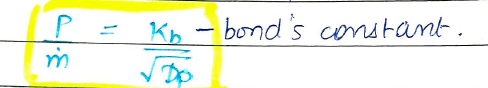 P/ṁ = K_b/√D_p – bond's constant.